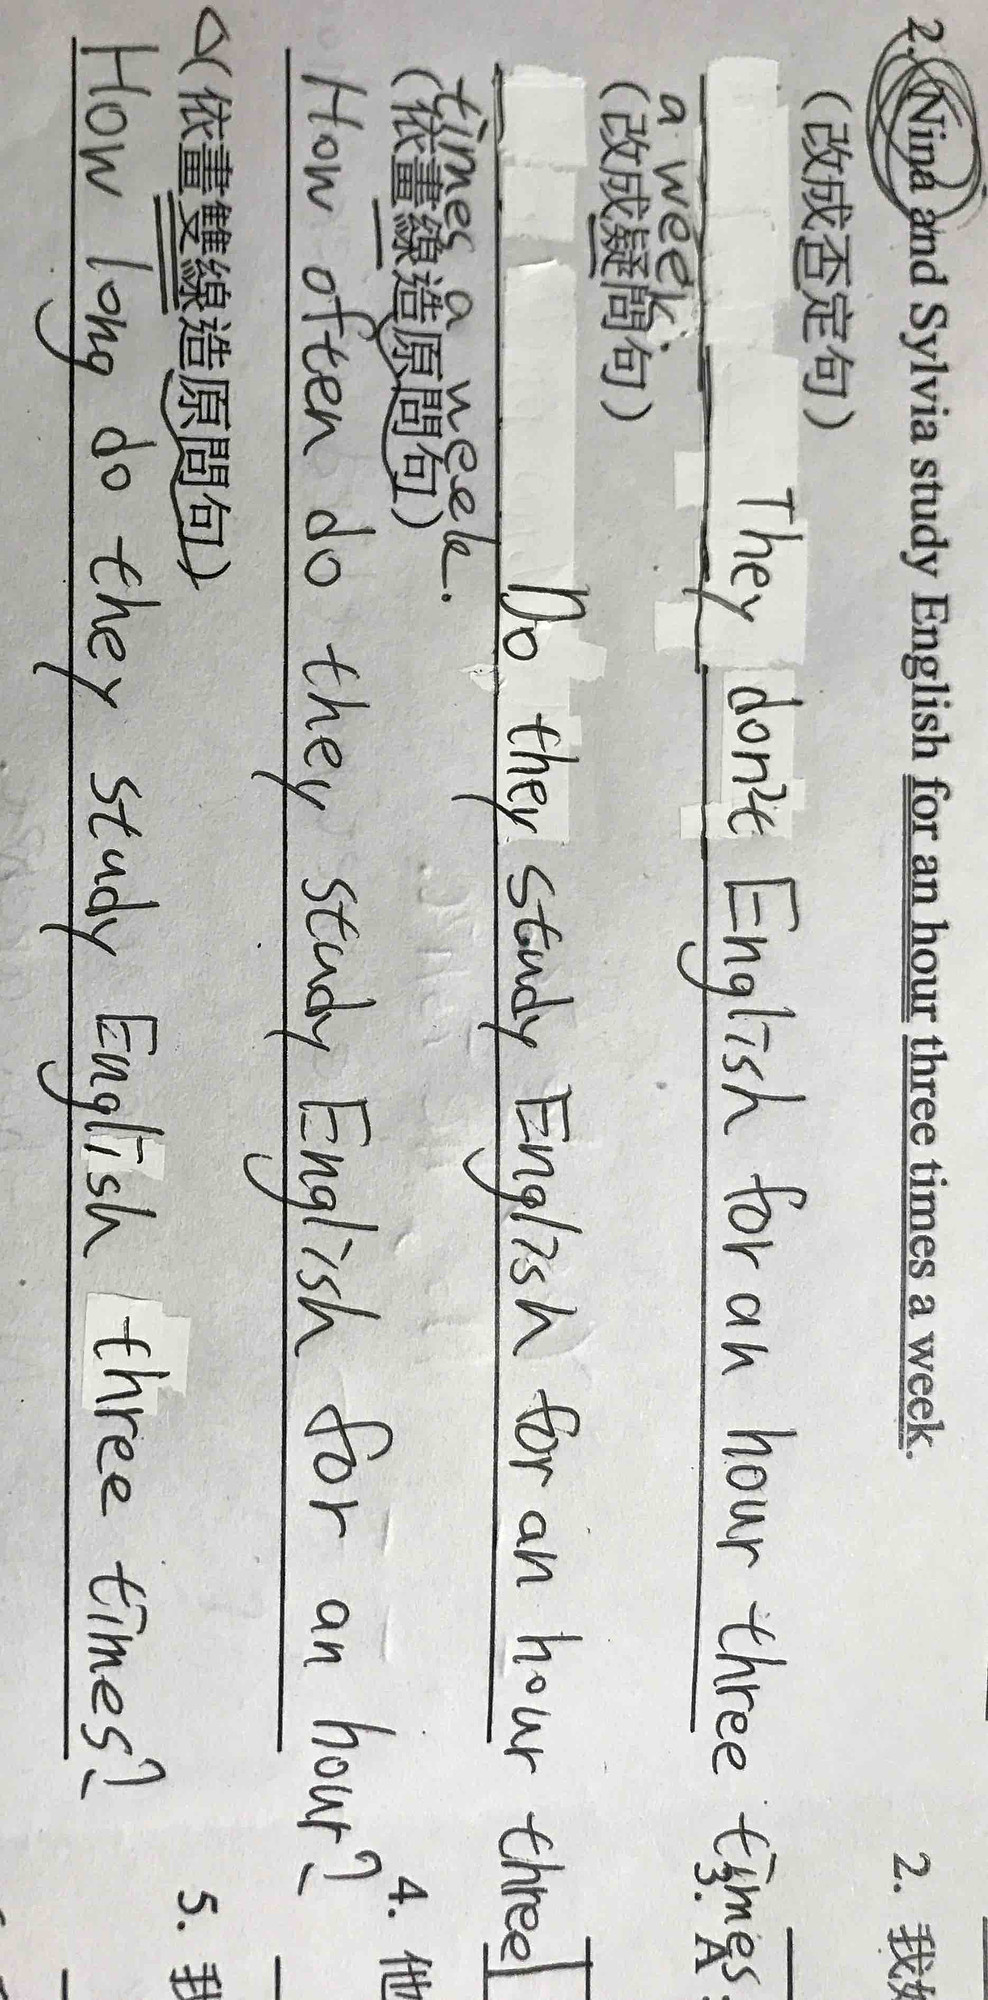 2. Nina and Sylvia study English for an hour three times a week.
(改成否定句)
They don't English for an hour three times
a week.
(改成疑問句)
Do they study English for an hour three
times a week.
(依畫線造原問句)
How often do they study English for an hour?
(依畫雙線造原問句)
How long do they study English three times?
2. 我
3. A
4. 他
5. 我